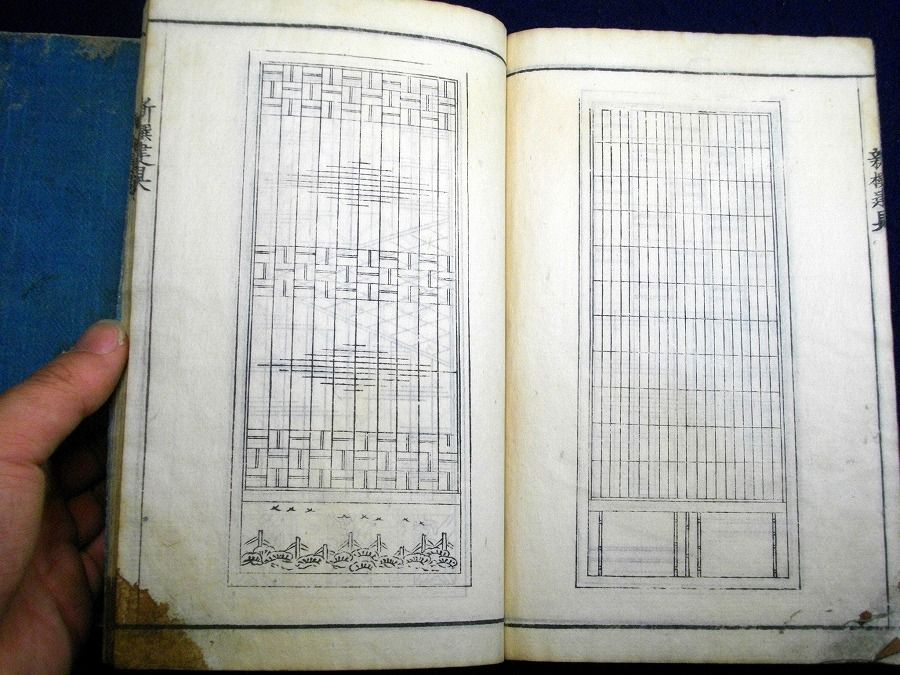 新撰建具
新撰建具